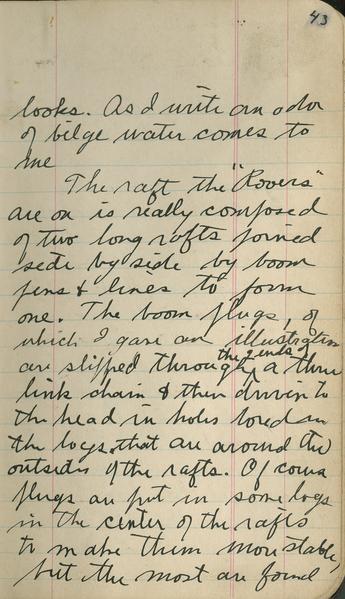 43
looks. As I write an odor
of bilge water comes to
me
The raft the "Rovers"
are on is really composed
of two long rafts joined
side by side by boom
pens & lines to form
one. The boom plugs, of
which I gave an illustration
are slipped through the 2 ends of a three
link chain & then driven to
the head in holes bored in
the logs, that are around the
outsides of the rafts. Of course
plugs are put in some logs
in the center of the rafts
to make them more stable,
but the most are found